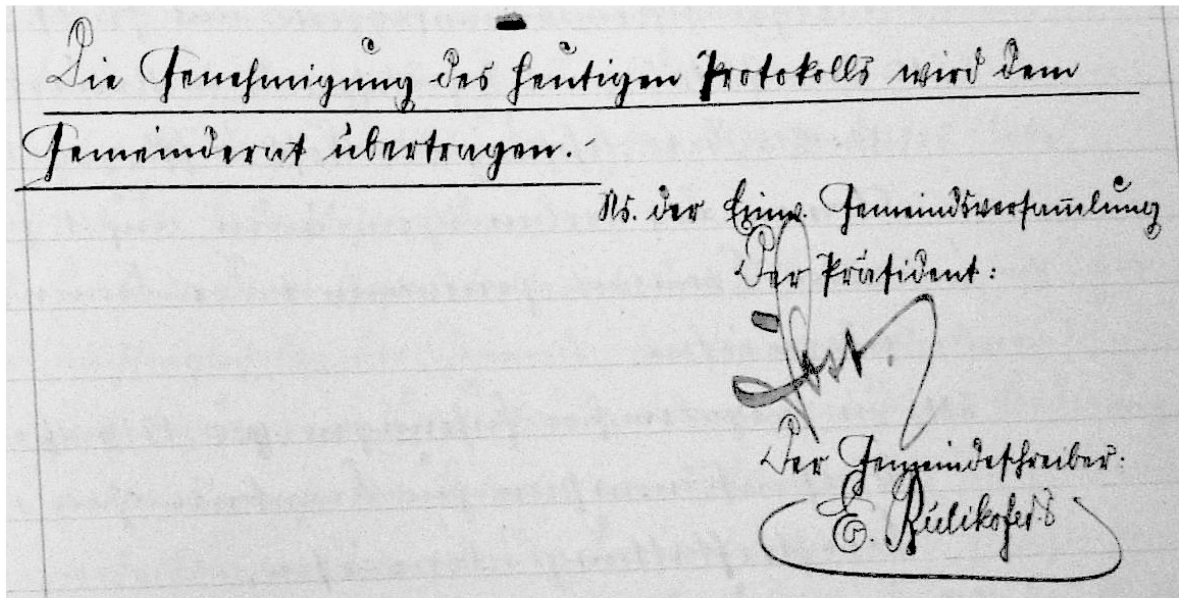 Die Genehmigung des heutigen Protokolls wird dem
Gemeinderat übertragen.-
Ns. der Einw. Gemeindsversam̅lung
Der Präsident:
Der Gemeindeschreiber:
E. Rülikofer